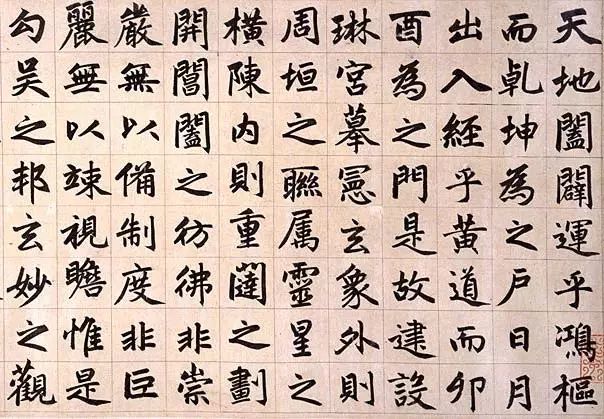 天地闔闢運乎鴻樞
而乹坤為之戶日月
出入經乎黃道而卯
酉為之門是故建設
琳宮摹憲玄象外則
周垣之聯属靈星之
橫陳內則重闥之劃
開閶闔之彷彿非崇
嚴無以備制度非巨
麗無以竦視瞻惟是
勾吳之邦玄妙之觀